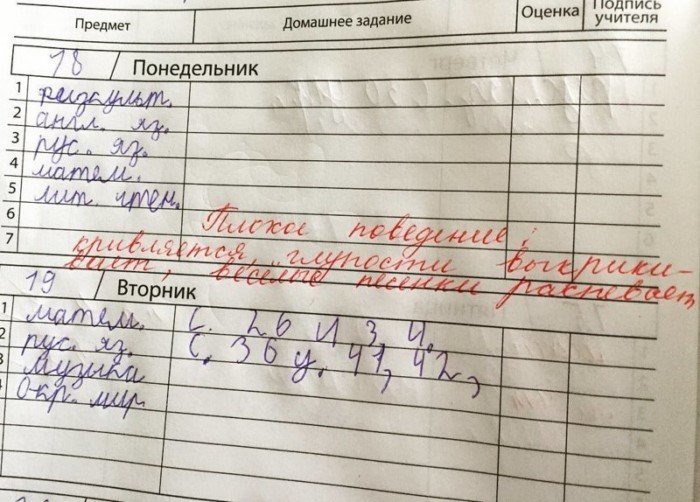 Предмет Домашнее задание Оценка Подпись учителя
18 Понедельник
1 физкульт.
2 англ. яз.
3 рус. яз.
4 матем.
5 лит. чтен.
6
7
Плохое поведение;
кривляется, глупости выкрики-
вает, весёлые песенки распевает
19 Вторник
1 матем. С. 26 И 3, 4.
2 рус. яз. С. 36 у. 41, 42,
3 музыка
окр. мир.